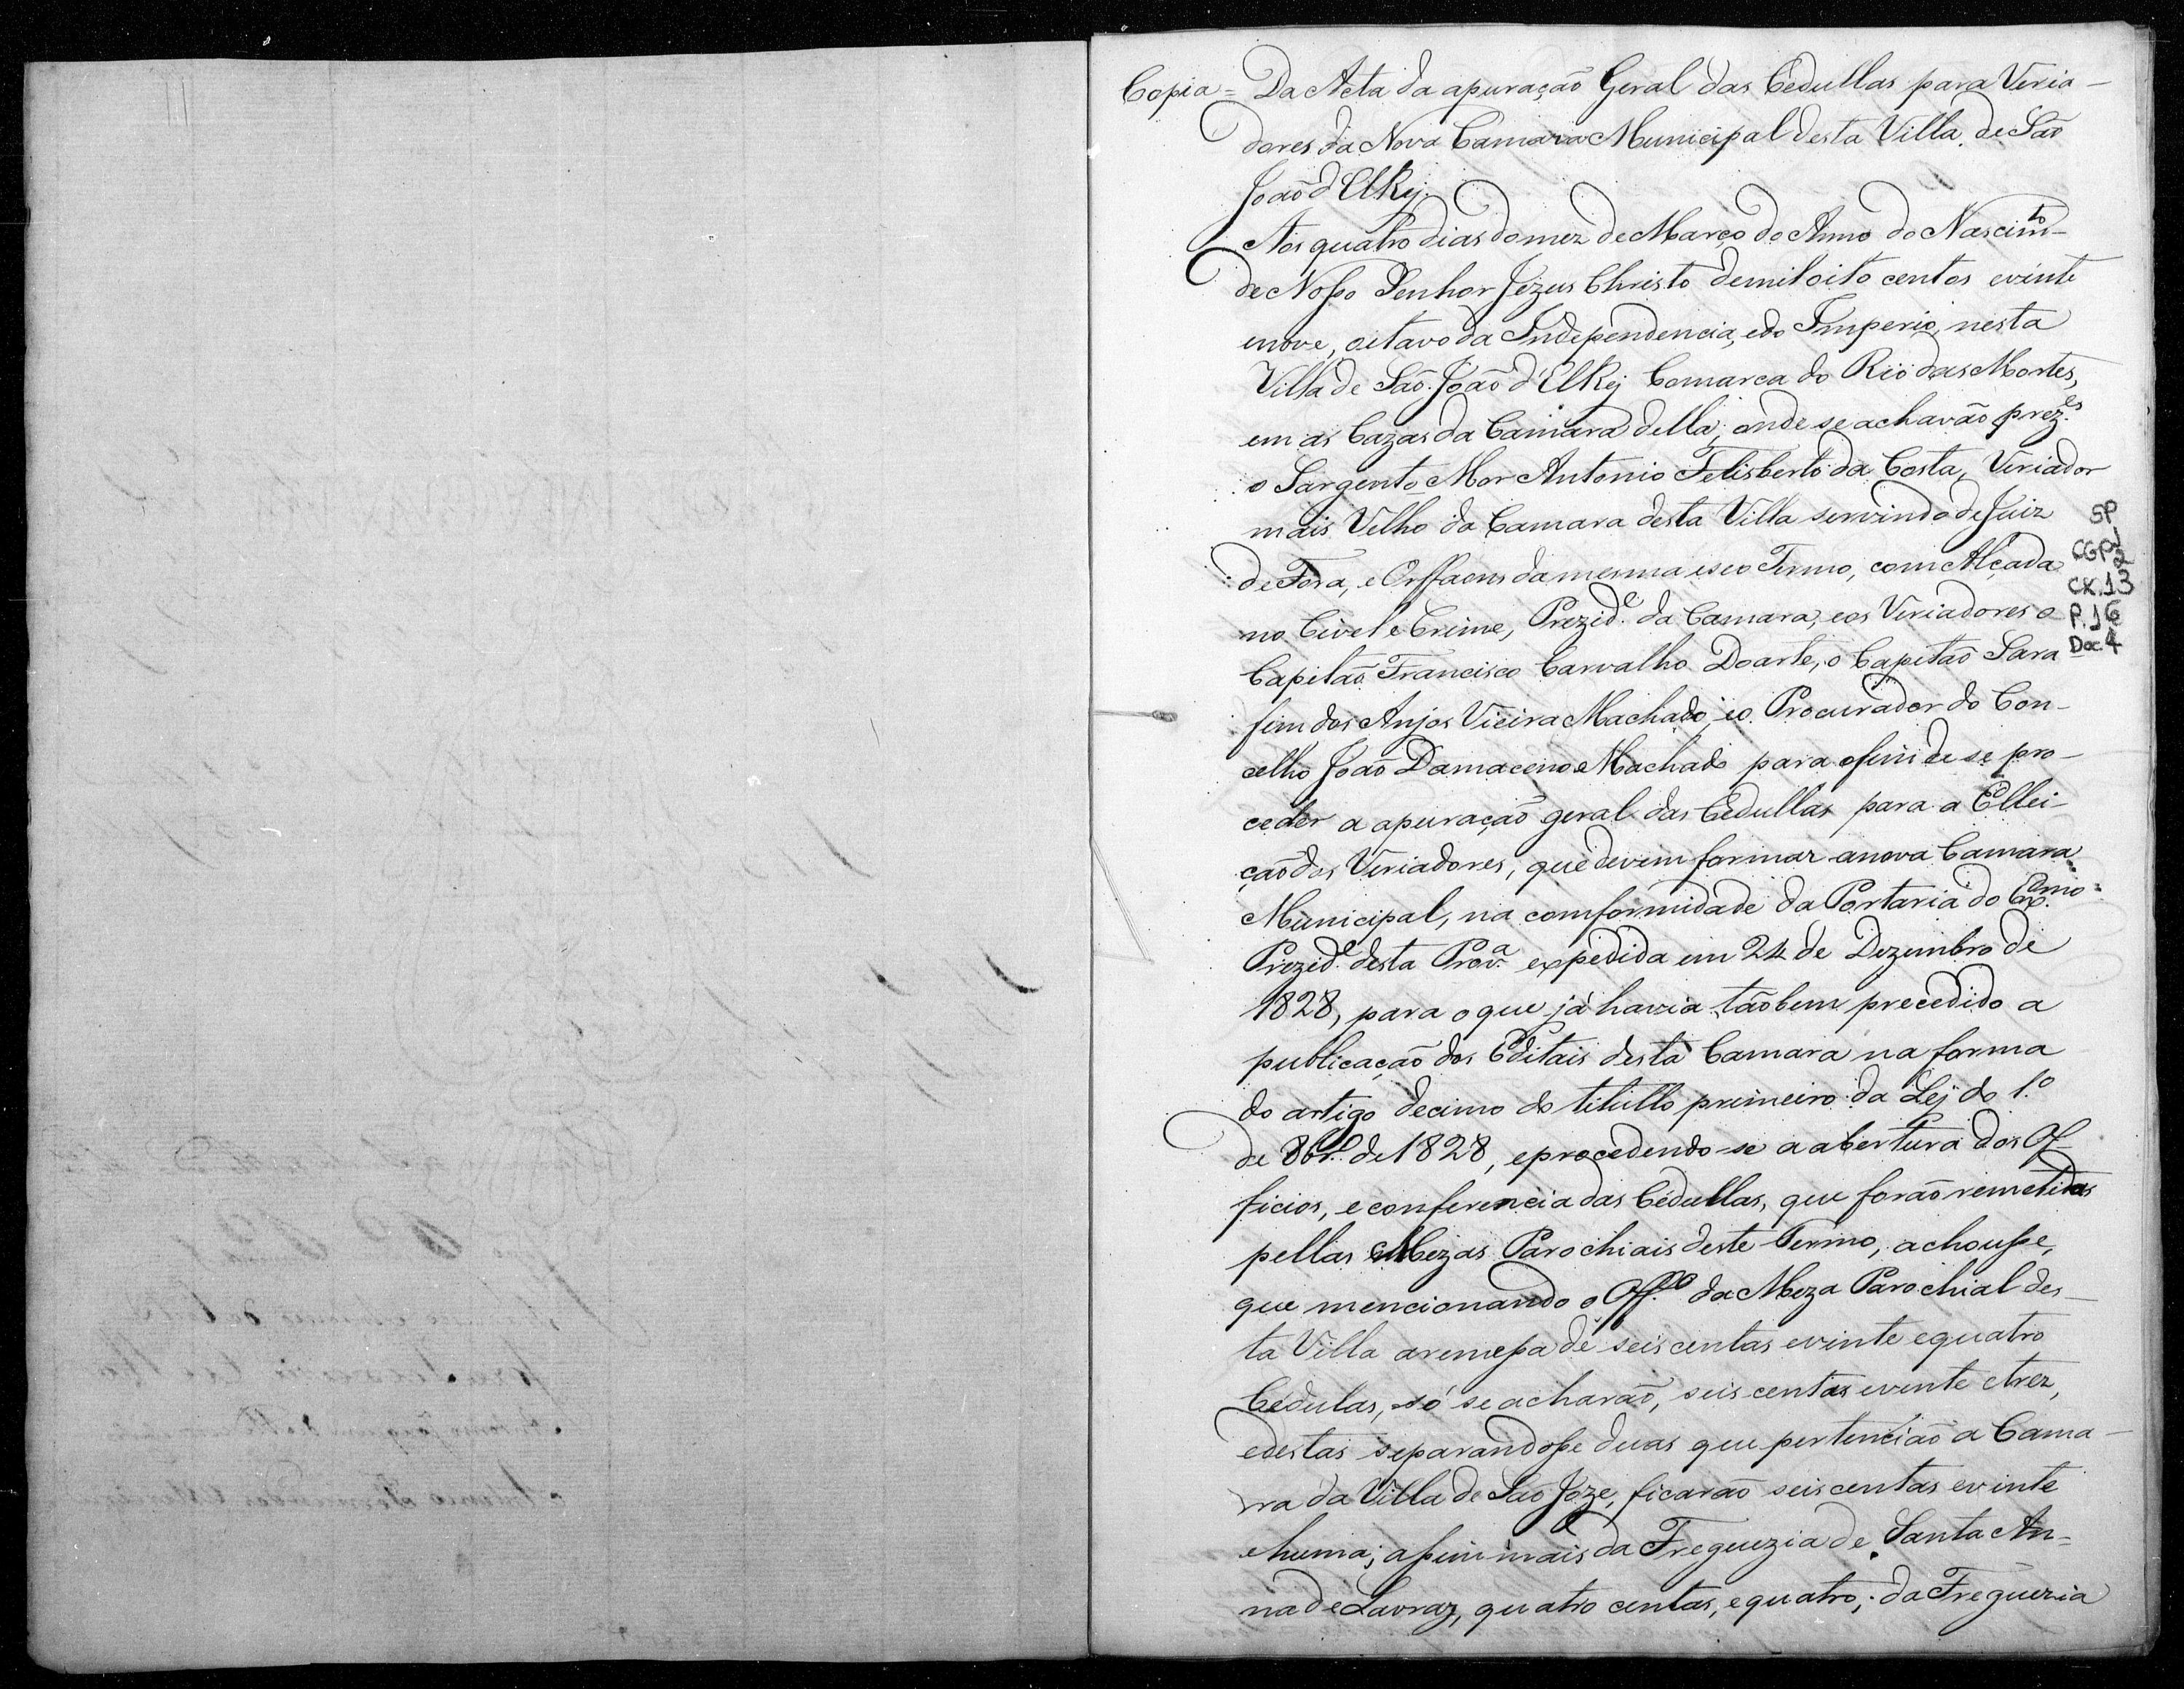 Copia = Da Acta da apuração Geral das Cedullas para Veria-
dores da Nova Camara Municipal desta Villa de São
João d'ElRej.
Aos quatro dias do mez de Março do Anno do Nascimto
de Nosso Senhor Jezus Christo de mil oito centos e vinte
e nove, oitavo da Independencia, e do Imperio, nesta
Villa de São João d'ElRej Comarca do Rio das Mortes,
em as Cazas da Camara della, onde se achavão prez.es
o Sargento Mor Antonio Felisberto da Costa, Veriador
mais Velho da Camara desta Villa servindo de Juiz
de Fora, e Orffaons da mesma e seo Termo, com Alçada
no Civel e Crime, Prezid.e da Camara, e os Veriadores o
Capitão Francisco Carvalho Doarte, o Capitão Sara-
fim dos Anjos Vieira Machado, e o Procurador do Con-
celho João Damaceno Machado para o fim de se pro-
ceder a apuração geral das Cedullas para a Ellei-
ção dos Veriadores, que devem formar a nova Camara
Municipal, na comformidade da Portaria do Ex.mo
Prezid.e desta Prov.a expedida em 24 de Dezembro de
1828, para o que já havia tãobem precedido a
publicação dos Editais desta Camara na forma
do artigo decimo do titullo primeiro da Lej do 1.o
de 8br.o de 1828, e procedendo-se a abertura dos Of
ficios, e conferencia das Cédullas, que forão remetidas
pellas Mezas Parochiais deste Termo, achousse,
que mencionando o Off.co da Meza Parochial des-
ta Villa a remessa de seis centas e vinte e quatro
Cédulas, só se acharão, seis centas e vinte e trez,
e destas separandosse duas que pertencião a Cama-
ra da Villa de São Joze, ficarão seis centas e vinte
e huma; assim mais da Freguezia de Santa An=
na de Lavras, quatro centas, e quatro; da Freguezia
SP
CGP1
2
CX.13
P.16
Doc.4